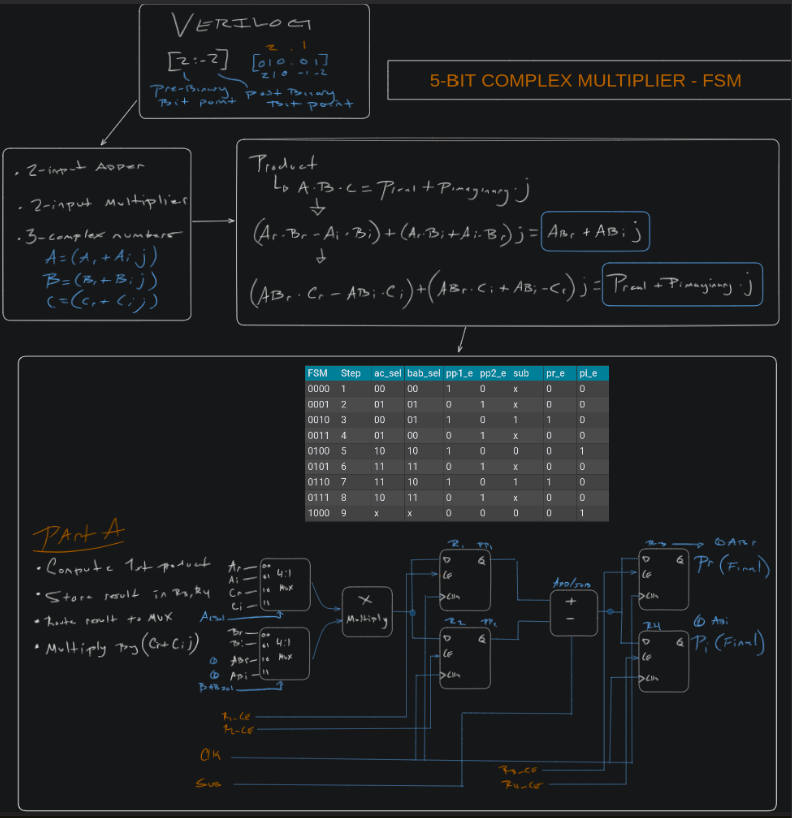 VERILOG
[2:-2]
2 . 1
[010.01]
2 1 0 -1 -2
Pre-Binary
Bit point
Post Binary
Bit point
5-BIT COMPLEX MULTIPLIER - FSM
• 2-input Adder
• 2-input Multiplier
• 3-complex numbers
A=(Ar+Ai j)
B=(Br+Bi j)
C=(Cr+Ci j)
Product
↳ A·B·C = Preal + Pimaginary·j
(Ar·Br - Ai·Bi) + (Ar·Bi + Ai·Br) j = ABr + ABi j
(ABr·Cr - ABi·Ci) + (ABr·Ci + ABi-Cr) j = Preal + Pimaginary·j
FSM Step ac_sel bab_sel pp1_e pp2_e sub pr_e pl_e
0000 1 00 00 1 0 x 0 0
0001 2 01 01 0 1 x 0 0
0010 3 00 01 1 0 1 1 0
0011 4 01 00 0 1 x 0 0
0100 5 10 10 1 0 0 0 1
0101 6 11 11 0 1 x 0 0
0110 7 11 10 1 0 1 1 0
0111 8 10 11 0 1 x 0 0
1000 9 x x 0 0 0 0 1
Part A
• Compute 1st product
• Store result in R3,R4
• Route result to MUX
• Multiply by (Cr+Ci j)
Ar 00
Ai 01 4:1
Cr 10 MUX
Ci 11
ACsel
Br 00
Bi 01 4:1
① ABr 10 MUX
① ABi 11
BABsel
X
Multiply
R1 PP1
D Q
CE
>Clk
R2 PP2
D Q
CE
>Clk
Add/sub
+
-
R3 → ① ABr
D Q
CE
>Clk
Pr (Final)
R4 ① ABi
D Q
CE
>Clk
Pi (Final)
R1_CE
R2_CE
Sub
R3_CE
R4_CE